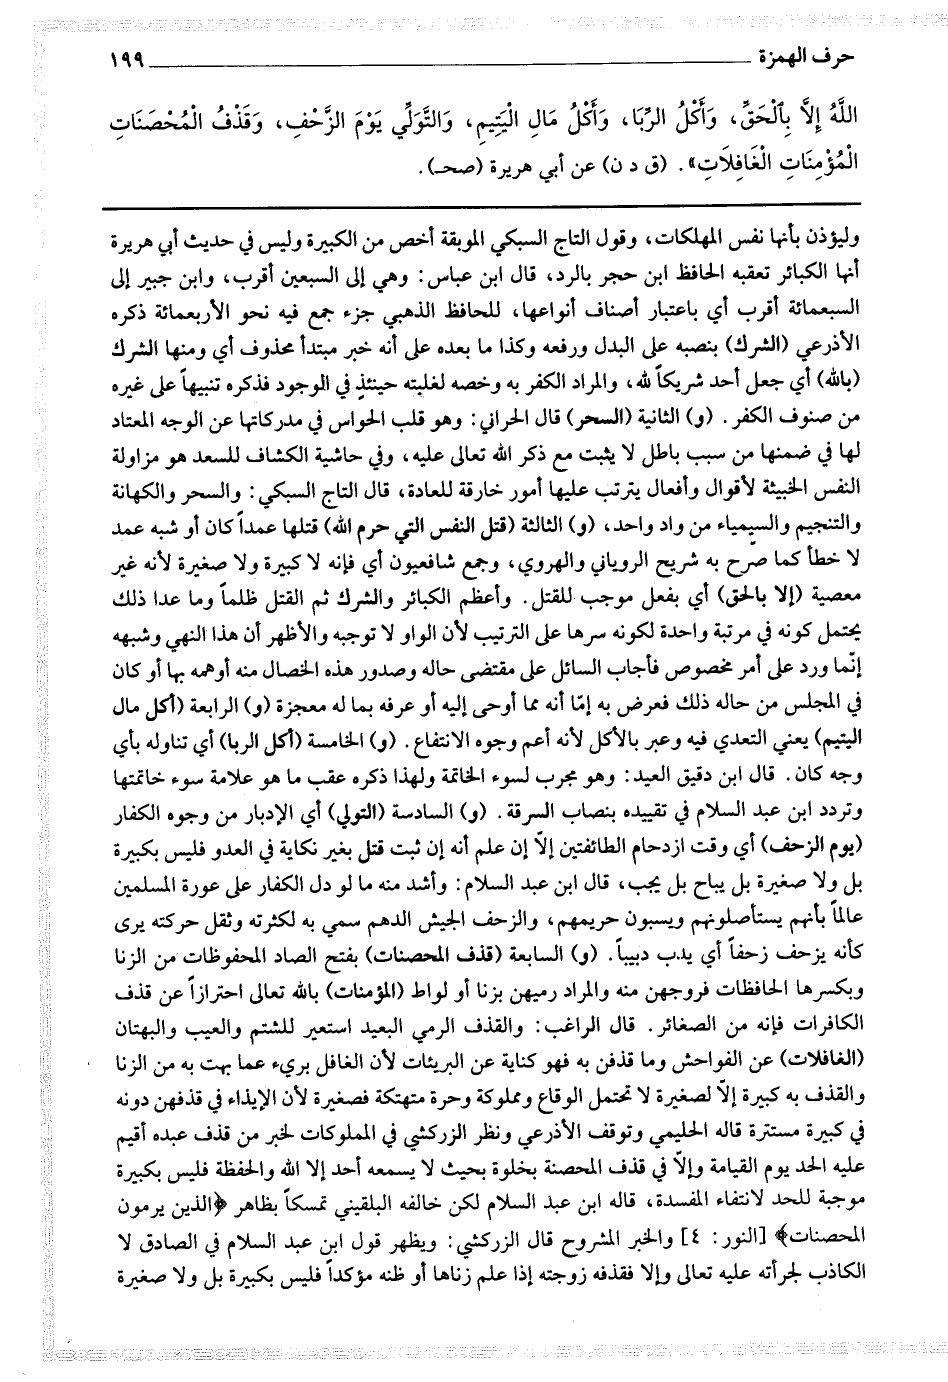 حرف الهمزة ١٩٩
اللَّهُ إِلَّا بِٱلْحَقِّ، وَأَكْلُ الرِّبَا، وَأَكْلُ مَالِ الْيَتِيمِ، وَالتَّوَلِّي يَوْمَ الزَّحْفِ، وَقَذْفُ الْمُحْصَنَاتِ
الْمُؤْمِنَاتِ الْغَافِلَاتِ». (ق د ن) عن أبي هريرة (صحـ).
وليؤذن بأنها نفس المهلكات، وقول التاج السبكي الموبقة أخص من الكبيرة وليس في حديث أبي هريرة
أنها الكبائر تعقبه الحافظ ابن حجر بالرد، قال ابن عباس: وهي إلى السبعين أقرب، وابن جبير إلى
السبعمائة أقرب أي باعتبار أصناف أنواعها، للحافظ الذهبي جزء جمع فيه نحو الأربعمائة ذكره
الأذرعي (الشرك) بنصبه على البدل ورفعه وكذا ما بعده على أنه خبر مبتدأ محذوف أي ومنها الشرك
(بالله) أي جعل أحد شريكاً لله، والمراد الكفر به وخصه لغلبته حينئذٍ في الوجود فذكره تنبيهاً على غيره
من صنوف الكفر. (و) الثانية (السحر) قال الحراني: وهو قلب الحواس في مدركاتها عن الوجه المعتاد
لها في ضمنها من سبب باطل لا يثبت مع ذكر الله تعالى عليه، وفي حاشية الكشاف للسعد هو مزاولة
النفس الخبيثة لأقوال وأفعال يترتب عليها أمور خارقة للعادة، قال التاج السبكي: والسحر والكهانة
والتنجيم والسيمياء من واد واحد، (و) الثالثة (قتل النفس التي حرم الله) قتلها عمداً كان أو شبه عمد
لا خطأ كما صرّح به شريح الروياني والهروي، وجمع شافعيون أي فإنه لا كبيرة ولا صغيرة لأنه غير
معصية (إلا بالحق) أي بفعل موجب للقتل. وأعظم الكبائر والشرك ثم القتل ظلماً وما عدا ذلك
يحتمل كونه في مرتبة واحدة لكونه سرها على الترتيب لأن الواو لا توجبه والأظهر أن هذا النهي وشبهه
إنّما ورد على أمر مخصوص فأجاب السائل على مقتضى حاله وصدور هذه الخصال منه أوهمه بها أو كان
في المجلس من حاله ذلك فعرض به إمّا أنه مما أوحى إليه أو عرفه بما له معجزة (و) الرابعة (أكل مال
اليتيم) يعني التعدي فيه وعبر بالأكل لأنه أعم وجوه الانتفاع. (و) الخامسة (أكل الربا) أي تناوله بأي
وجه كان. قال ابن دقيق العيد: وهو مجرب لسوء الخاتمة ولهذا ذكره عقب ما هو علامة سوء خاتمتها
وتردد ابن عبد السلام في تقييده بنصاب السرقة. (و) السادسة (التولي) أي الإدبار من وجوه الكفار
(يوم الزحف) أي وقت ازدحام الطائفتين إلاّ إن علم أنه إن ثبت قتل بغير نكاية في العدو فليس بكبيرة
بل ولا صغيرة بل يباح بل يجب، قال ابن عبد السلام: وأشد منه ما لو دل الكفار على عورة المسلمين
عالماً بأنهم يستأصلونهم ويسبون حريمهم، والزحف الجيش الدهم سمي به لكثرته وثقل حركته يرى
كأنه يزحف زحفاً أي يدب دبيباً. (و) السابعة (قذف المحصنات) بفتح الصاد المحفوظات من الزنا
وبكسرها الحافظات فروجهن منه والمراد رميهن بزنا أو لواط (المؤمنات) بالله تعالى احترازاً عن قذف
الكافرات فإنه من الصغائر. قال الراغب: والقذف الرمي البعيد استعير للشتم والعيب والبهتان
(الغافلات) عن الفواحش وما قذفن به فهو كناية عن البريئات لأن الغافل بريء عما بهت به من الزنا
والقذف به كبيرة إلاّ لصغيرة لا تحتمل الوقاع ومملوكة وحرة متهتكة فصغيرة لأن الإيذاء في قذفهن دونه
في كبيرة مستترة قاله الحليمي وتوقف الأذرعي ونظر الزركشي في المملوكات لخبر من قذف عبده أقيم
عليه الحد يوم القيامة وإلاّ في قذف المحصنة بخلوة بحيث لا يسمعه أحد إلا الله والحفظة فليس بكبيرة
موجبة للحد لانتفاء المفسدة، قاله ابن عبد السلام لكن خالفه البلقيني تمسكاً بظاهر ﴿الذين يرمون
المحصنات﴾ [النور: ٤] والخبر المشروح قال الزركشي: ويظهر قول ابن عبد السلام في الصادق لا
الكاذب لجرأته عليه تعالى وإلا فقذفه زوجته إذا علم زناها أو ظنه مؤكداً فليس بكبيرة بل ولا صغيرة